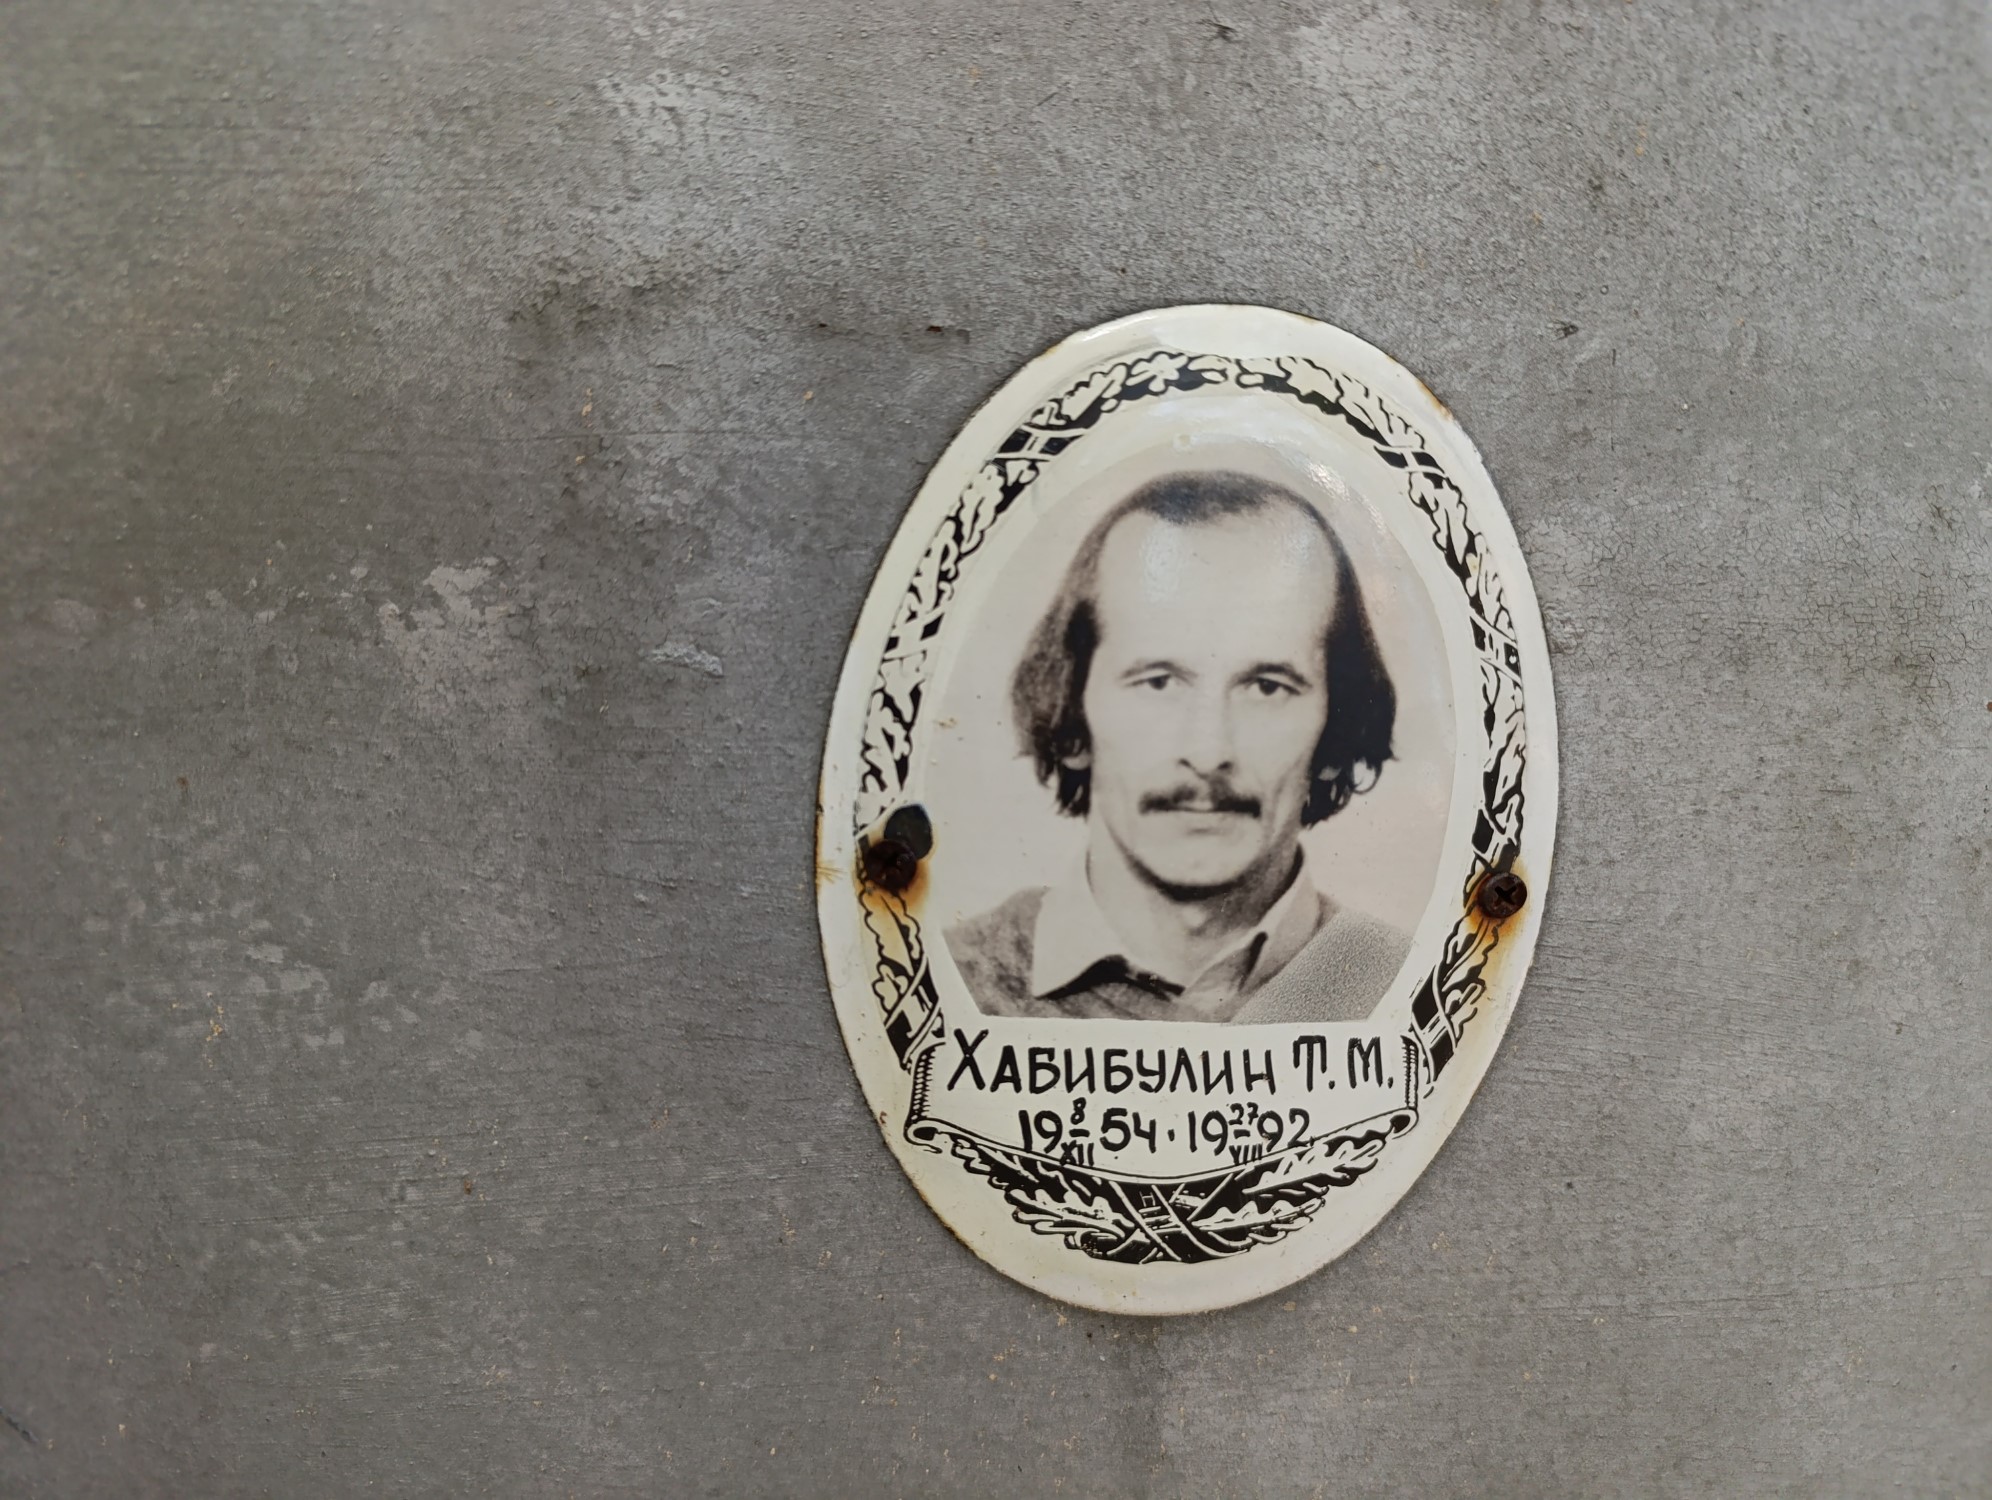 ХАБИБУЛИН Т. М.
19 8/XII 54 · 19 27/VIII 92